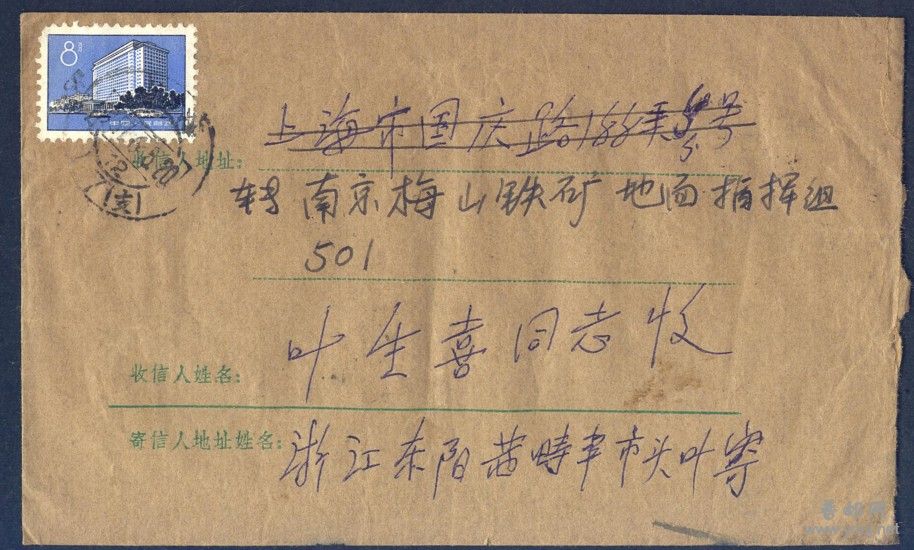 8分
中国人民邮政
上海市国庆路188弄号
收信人地址:
转 南京梅山铁矿地面指挥组
501
叶生喜同志收
收信人姓名:
寄信人地址姓名: 浙江东阳茜畴市头叶寄